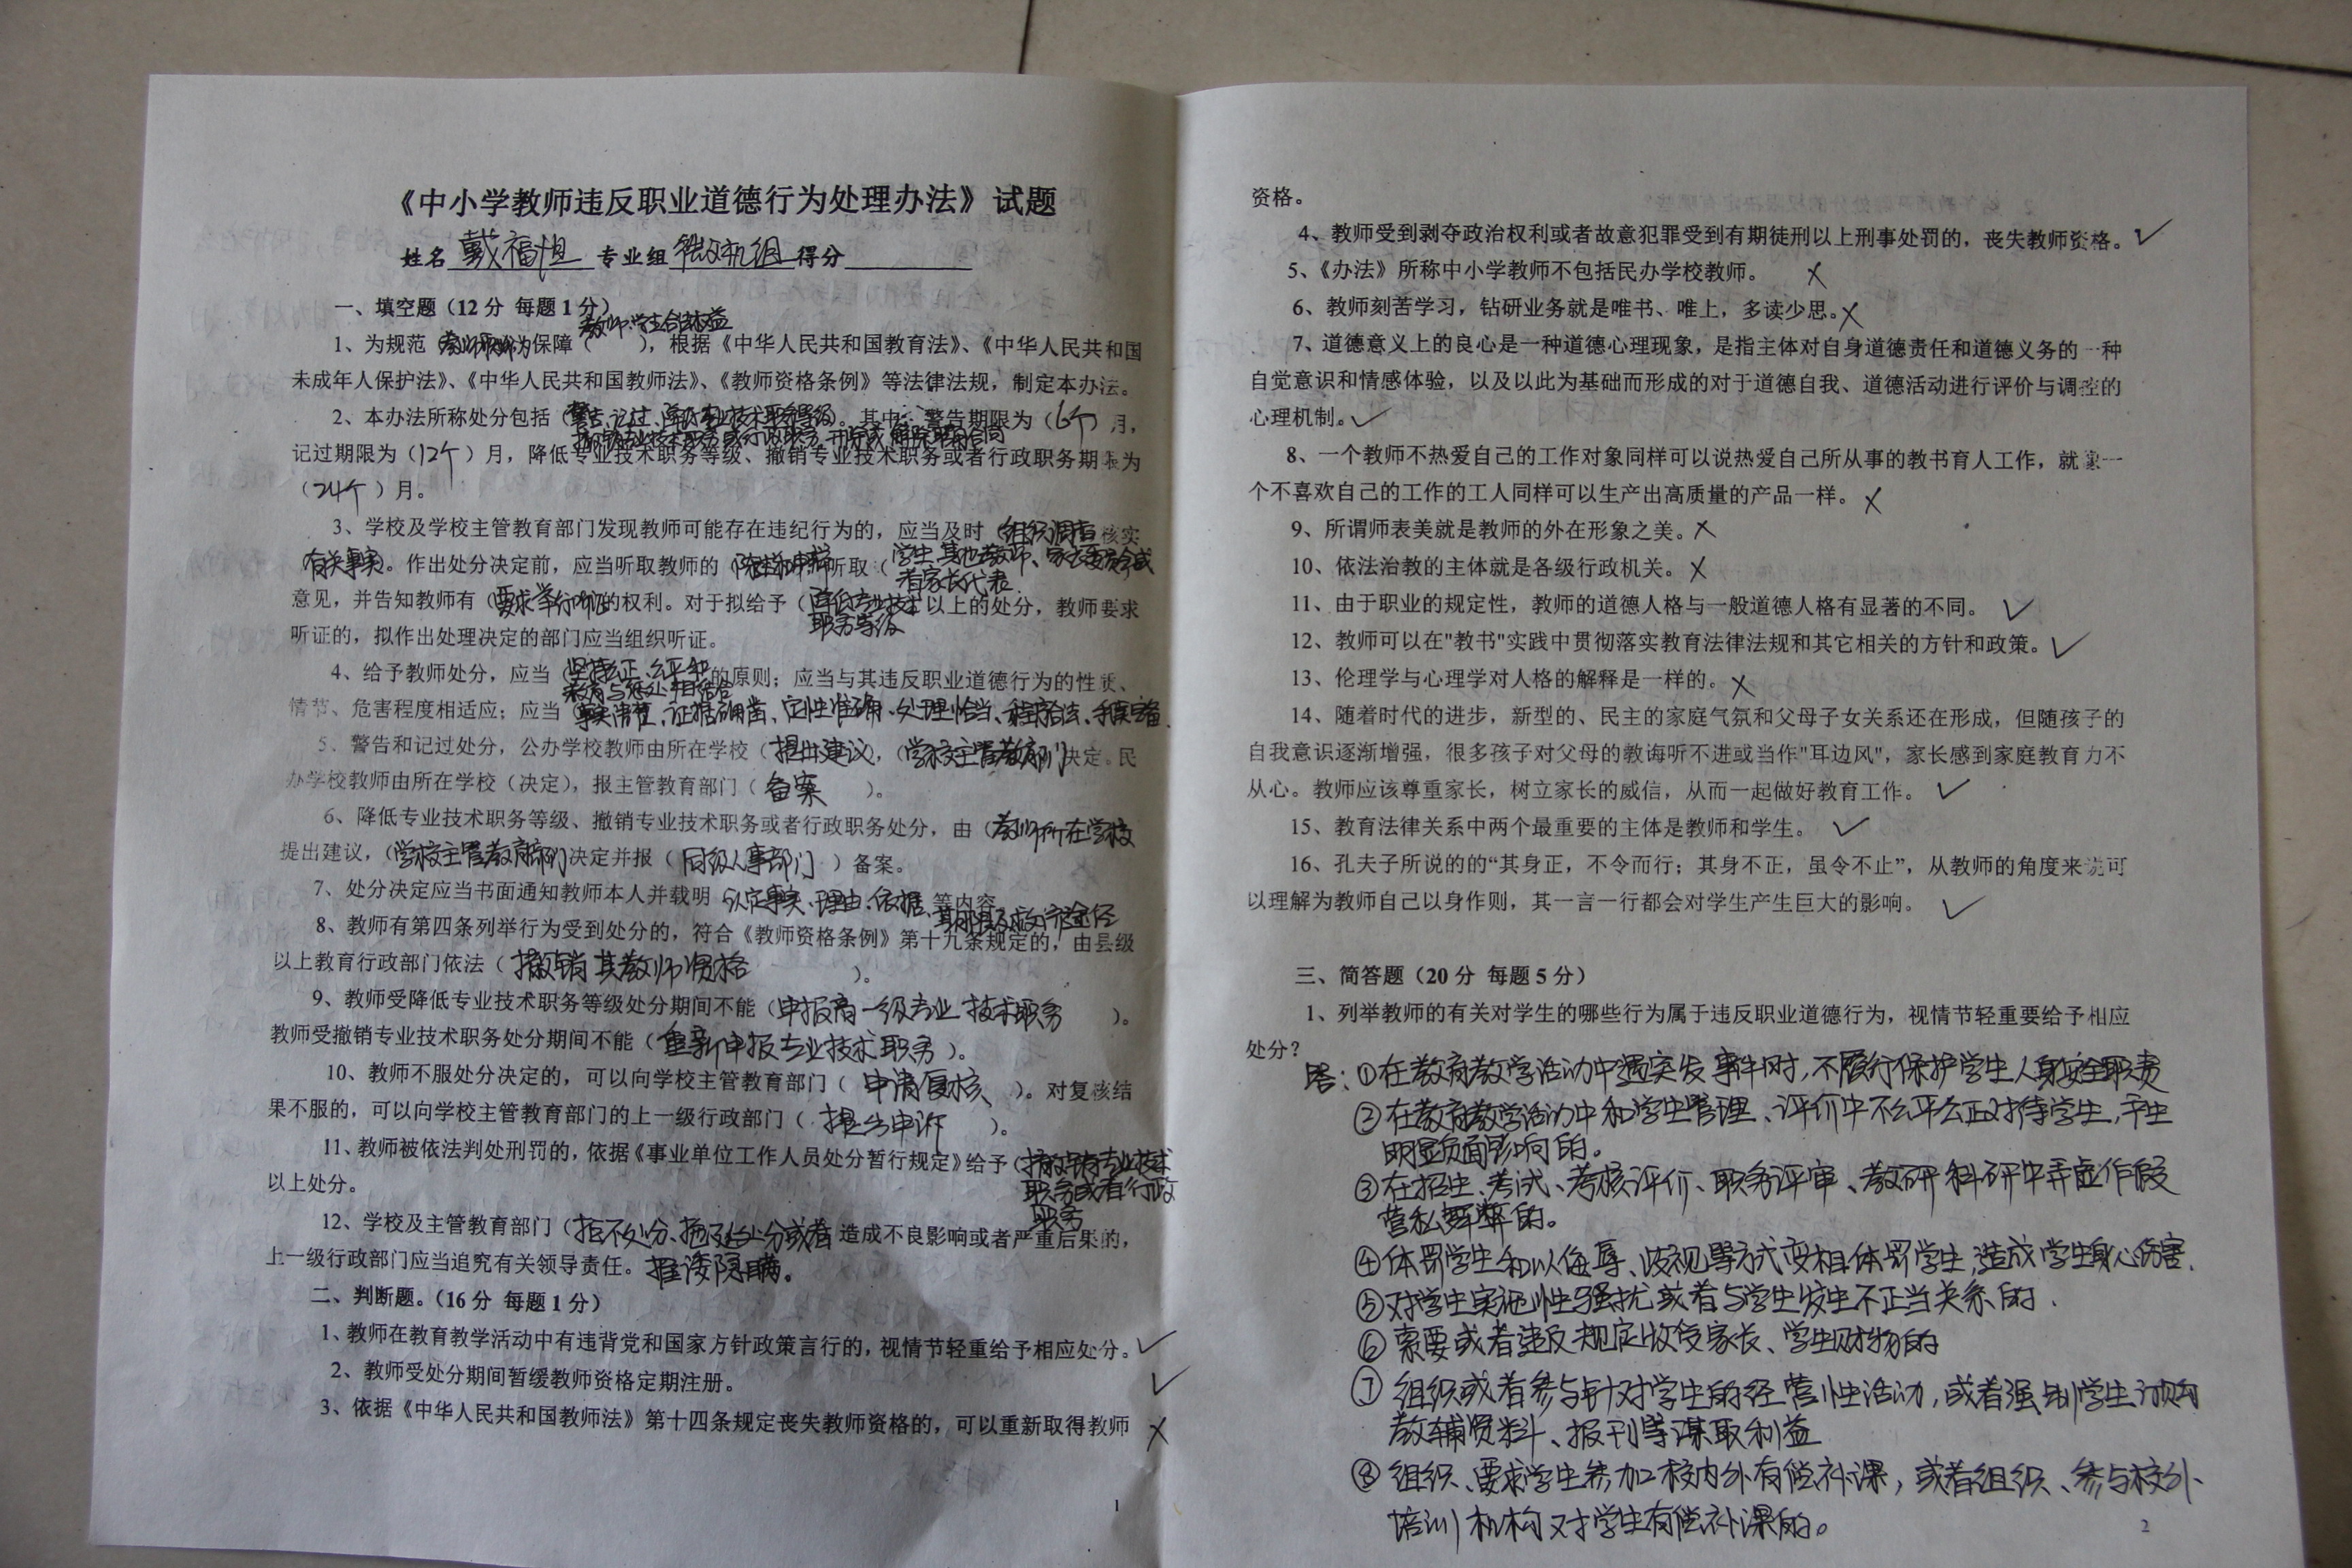 《中小学教师违反职业道德行为处理办法》试题
姓名 戴福恒 专业组 微机组 得分
一、填空题（12分 每题1分）
教师、学生合法权益
1、为规范（教师职业行为）保障（ ），根据《中华人民共和国教育法》、《中华人民共和国
未成年人保护法》、《中华人民共和国教师法》、《教师资格条例》等法律法规，制定本办法。
2、本办法所称处分包括（警告、记过、降低专业技术职务等级）。其中，警告期限为（6个）月，
撤销专业技术职务或行政职务、开除或解除聘用合同
记过期限为（12个）月，降低专业技术职务等级、撤销专业技术职务或者行政职务期限为
（24个）月。
3、学校及学校主管教育部门发现教师可能存在违纪行为的，应当及时（组织调查 核实
有关事实。作出处分决定前，应当听取教师的（陈述和申辩 听取（学生、其他教师、家长委员会或
者家长代表
意见，并告知教师有（要求举行听证的权利。对于拟给予（降低专业技术 以上的处分，教师要求
职务等级
听证的，拟作出处理决定的部门应当组织听证。
4、给予教师处分，应当（坚持公正、公平和 的原则；应当与其违反职业道德行为的性质、
教育与惩处相结合
情节、危害程度相适应；应当（事实清楚、证据确凿、定性准确、处理恰当、程序合法、手续完备.
5、警告和记过处分，公办学校教师由所在学校（提出建议），（学校主管教育部门 决定。民
办学校教师由所在学校（决定），报主管教育部门（ 备案 ）。
6、降低专业技术职务等级、撤销专业技术职务或者行政职务处分，由（教师所在学校
提出建议，（学校主管教育部门 决定并报（同级人事部门）备案。
7、处分决定应当书面通知教师本人并载明（认定事实、理由、依据、等内容
期限及救济途径
8、教师有第四条列举行为受到处分的，符合《教师资格条例》第十九条规定的，由县级
以上教育行政部门依法（撤销其教师资格 ）。
9、教师受降低专业技术职务等级处分期间不能（申报高一级专业技术职务 ）。
教师受撤销专业技术职务处分期间不能（重新申报专业技术职务）。
10、教师不服处分决定的，可以向学校主管教育部门（ 申请复核 ）。对复核结
果不服的，可以向学校主管教育部门的上一级行政部门（ 提出申诉 ）。
11、教师被依法判处刑罚的，依据《事业单位工作人员处分暂行规定》给予（撤销专业技术
职务或者行政
职务
以上处分。
12、学校及主管教育部门（拒不处分、拖延处分或者 造成不良影响或者严重后果的，
上一级行政部门应当追究有关领导责任。推诿隐瞒。
二、判断题。（16分 每题1分）
1、教师在教育教学活动中有违背党和国家方针政策言行的，视情节轻重给予相应处分。✓
2、教师受处分期间暂缓教师资格定期注册。 ✓
3、依据《中华人民共和国教师法》第十四条规定丧失教师资格的，可以重新取得教师 ×
1
资格。
4、教师受到剥夺政治权利或者故意犯罪受到有期徒刑以上刑事处罚的，丧失教师资格。✓
5、《办法》所称中小学教师不包括民办学校教师。 ×
6、教师刻苦学习，钻研业务就是唯书、唯上，多读少思。×
7、道德意义上的良心是一种道德心理现象，是指主体对自身道德责任和道德义务的一种
自觉意识和情感体验，以及以此为基础而形成的对于道德自我、道德活动进行评价与调控的
心理机制。✓
8、一个教师不热爱自己的工作对象同样可以说热爱自己所从事的教书育人工作，就象一
个不喜欢自己的工作的工人同样可以生产出高质量的产品一样。×
9、所谓师表美就是教师的外在形象之美。×
10、依法治教的主体就是各级行政机关。×
11、由于职业的规定性，教师的道德人格与一般道德人格有显著的不同。 ✓
12、教师可以在"教书"实践中贯彻落实教育法律法规和其它相关的方针和政策。✓
13、伦理学与心理学对人格的解释是一样的。×
14、随着时代的进步，新型的、民主的家庭气氛和父母子女关系还在形成，但随孩子的
自我意识逐渐增强，很多孩子对父母的教诲听不进或当作"耳边风"，家长感到家庭教育力不
从心。教师应该尊重家长，树立家长的威信，从而一起做好教育工作。 ✓
15、教育法律关系中两个最重要的主体是教师和学生。 ✓
16、孔夫子所说的的“其身正，不令而行；其身不正，虽令不止”，从教师的角度来说可
以理解为教师自己以身作则，其一言一行都会对学生产生巨大的影响。 ✓
三、简答题（20分 每题5分）
1、列举教师的有关对学生的哪些行为属于违反职业道德行为，视情节轻重要给予相应
处分？
答：①在教育教学活动中遇突发事件时，不履行保护学生人身安全职责
②在教育教学活动中和学生管理、评价中不公平公正对待学生，产生
明显负面影响的。
③在招生、考试、考核评价、职务评审、教研科研中弄虚作假
营私舞弊的。
④体罚学生和以侮辱、歧视等方式变相体罚学生，造成学生身心伤害.
⑤对学生实施性骚扰或者与学生发生不正当关系的.
⑥索要或者违反规定收受家长、学生财物的
⑦组织或者参与针对学生的经营性活动，或者强制学生订购
教辅资料、报刊等谋取利益
⑧组织、要求学生参加校内外有偿补课，或者组织、参与校外
培训机构对学生有偿补课的。
2